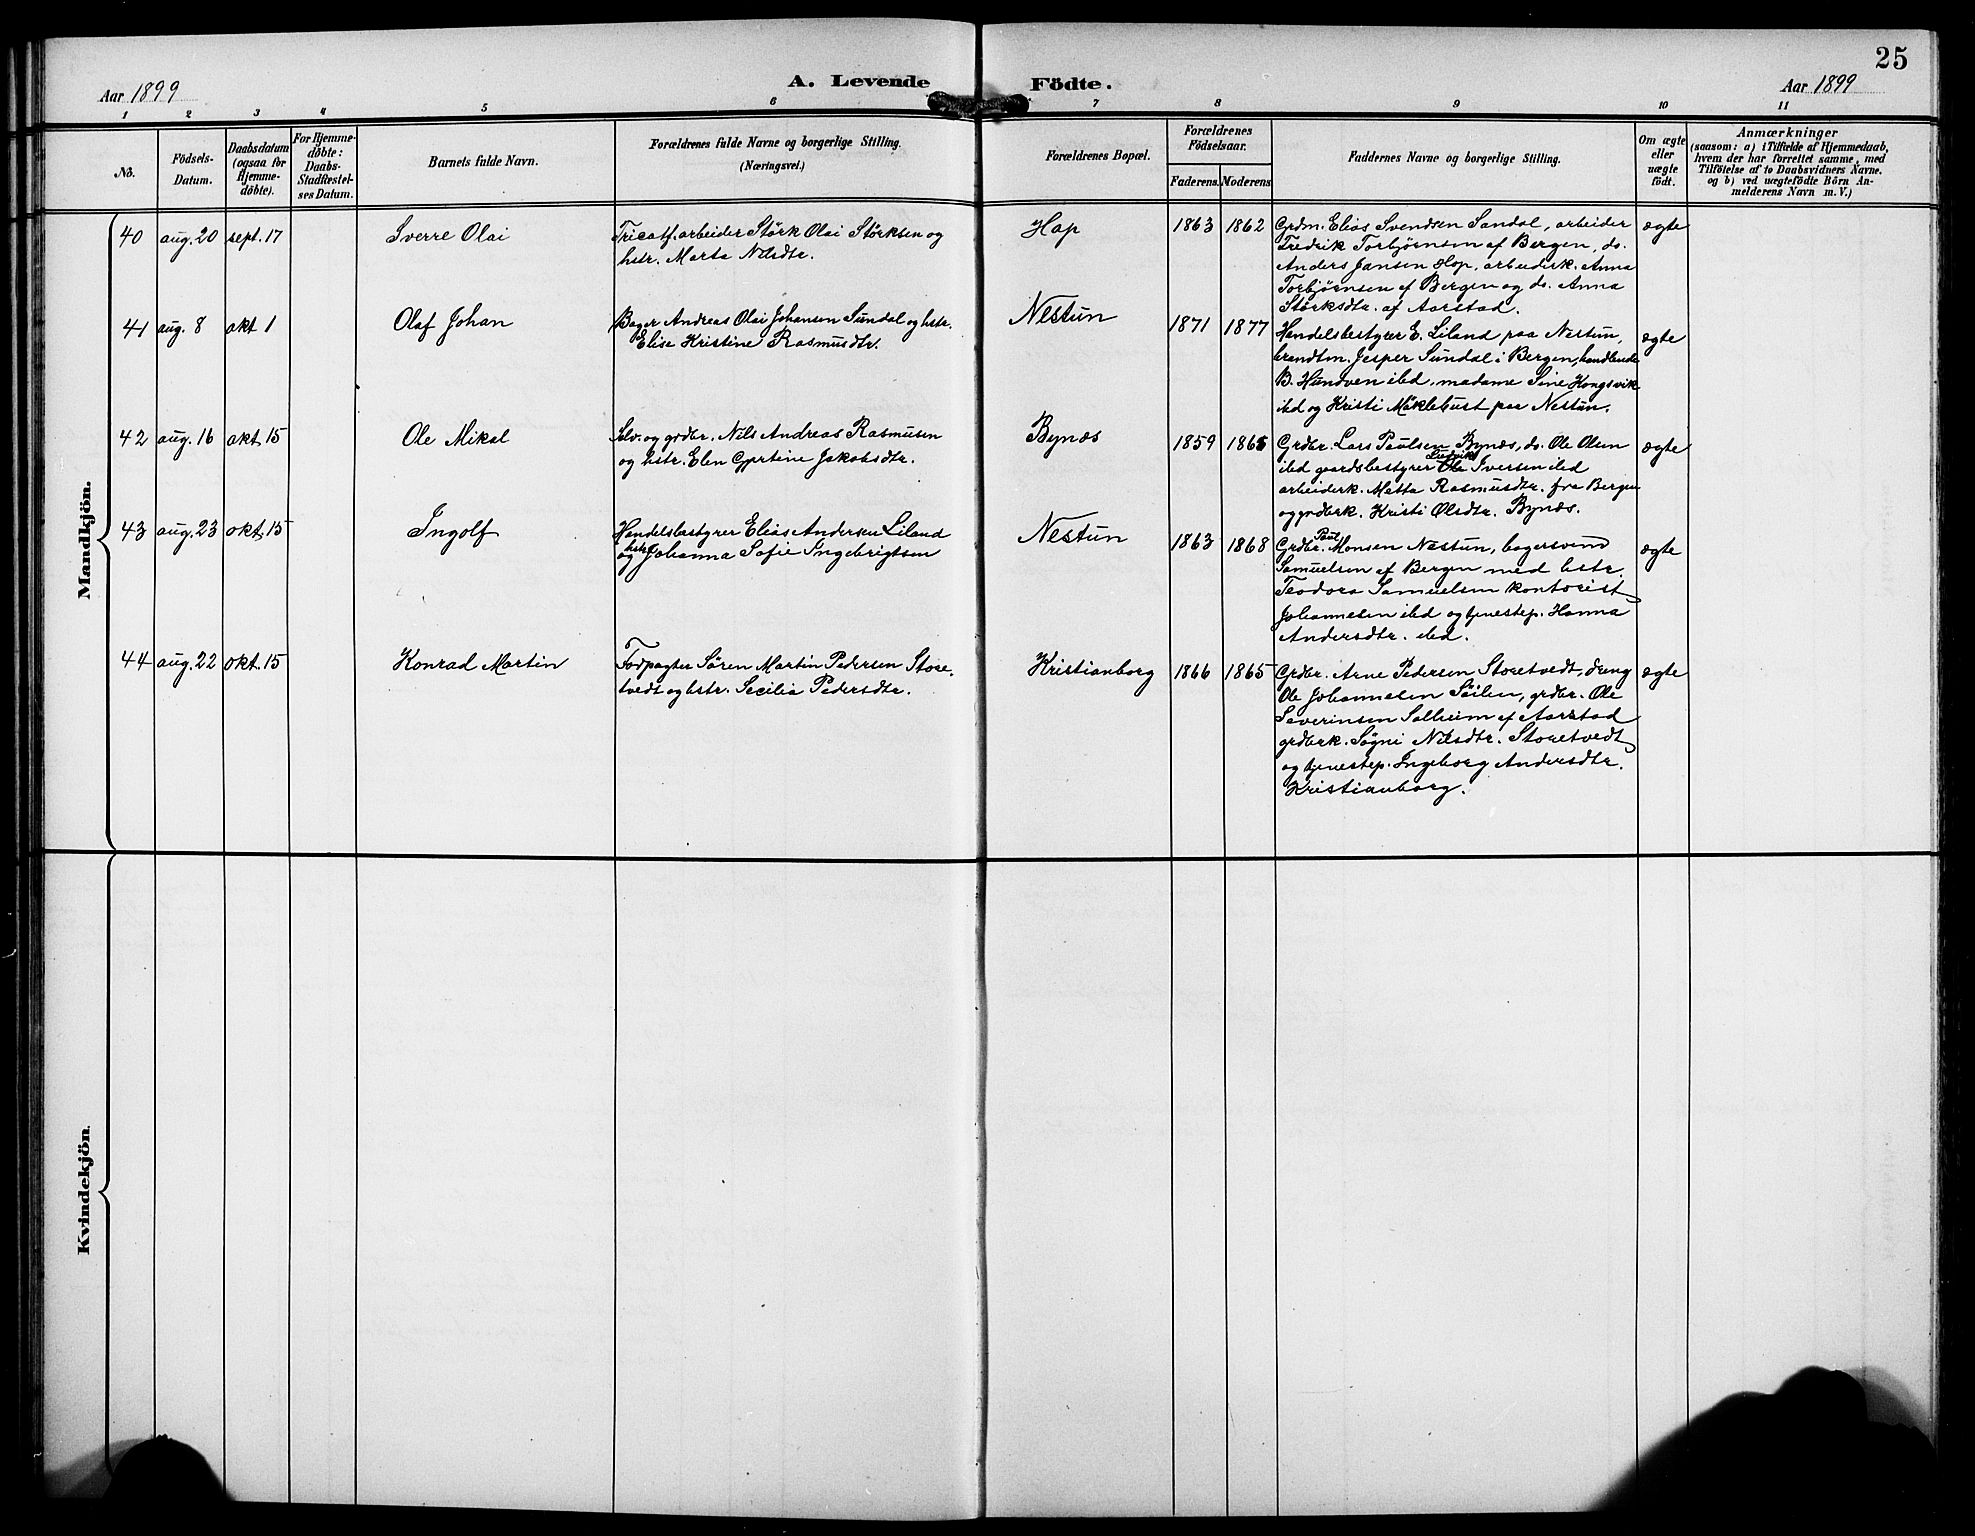 25
A. Levende Födte.
Aar 1899
Aar 1899
1 2 3 4 5 6 7 8 9 10 11
No.
Födsels-
Datum.
Daabsdatum
(ogsaa for
Hjemme-
döbte).
For Hjemme-
döbte:
Daabs-
Stadfæstel-
ses Datum.
Barnets fulde Navn.
Forældrenes fulde Navne og borgerlige Stilling.
(Næringsvei.)
Forældrenes Bopæl.
Forældrenes
Födselsaar.
Faderens.
Moderens
Faddernes Navne og borgerlige Stilling.
Om ægte
eller
uægte
födt.
Anmærkninger
(saasom: a) i Tilfælde af Hjemmedaab,
hvem der har forrettet samme, med
Tilföielse af to Daabsvidners Navne.
og b) ved uægtefödte Börn An-
melderens Navn m. V.)
Mandkjön.
40 aug. 20 sept. 17
Sverre Olai
Tricotf. arbeider Størk Olai Størksen og
hstr. Marta Nilsdtr.
Hop
1863 1862
Grdm. Elias Svendsen Sandal, arbeider
Fredrik Torbjørnsen af Bergen, do.
Anders Jansen Hop, arbeiderk. Anna
Torbjørnsen af Bergen og do. Anna
Størksdtr. af Aarstad.
ægte
41 aug. 8 okt 1
Olaf Johan
Bager Andreas Olai Johansen Sundal og hstr.
Elise Kristine Rasmusdtr.
Nestun
1871 1877
Handelsbestyrer E. Liland paa Nestun,
brandtm. Jesper Sundal i Bergen, handlende
B. Hundven ibd, madame Sine Kongsvik
ibd og Kristi Möklebust paa Nestun.
ægte
42 aug. 16 okt. 15
Ole Mikal
Selv. og grdbr. Nils Andreas Rasmusen
og hstr. Elen Cyrtine Jakobsdtr.
Bynæs
1859 1865
Grdbr. Lars Paulsen Bynæs, do. Ole Olsen
ibd gaardsbestyrer Ole Ludvik Iversen ibd
arbeiderk. Metta Rasmusdtr. fra Bergen
og grdbrk. Kristi Olsdtr. Bynæs.
ægte
43 aug. 23 okt. 15
Ingolf
Handelsbestyrer Elias Andersen Liland
og hstr. Johanna Sofie Ingebrigtsen
Nestun
1863 1868
Grdbr. Paul Monsen Nestun, bagersvend
Samuelsen af Bergen med hstr.
Teodora Samuelsen kontorist
Johannesen ibd og tjenestep. Hanna
Andersdtr. ibd.
ægte
44 aug. 22 okt. 15
Konrad Martin
Fodpagter Sören Martin Pedersen Store-
tvedt og hstr. Secilia Pedersdtr.
Kristianborg
1866 1865
Grdbr. Arne Pedersen Storetvedt, dreng
Ole Johannesen Söilen, grdbr. Ole
Severinsen Solheim af Aarstad
grdbrk. Søgni Nilsdtr. Storetvedt
og tjenestep. Ingeborg Andersdtr.
Kristianborg.
ægte
Kvindekjön.